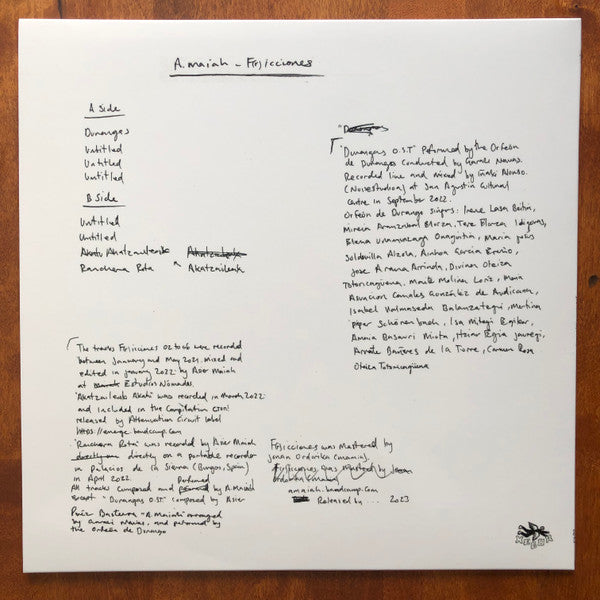 A. maiah - F(r)icciones
A Side
Durangos
Untitled
Untitled
Untitled
B Side
Untitled
Untitled
Akatzailenk
Ranchera Rota
Akatzailenk
"Durangos O.S.T" Performed by the Orfeón
de Durango conducted by Navas.
Recorded live and mixed by Iñaki Alonso.
(Noisestudioa) at San Agustin Cultural
Centre in September 2022.
Orfeón de Durango singers: Irene Lasa Beitia,
Mireia Aranzabal Elorza, Tere Elorza Idigoras,
Elena Unamunzaga Onagoitia, Maria
Soldevilla Alzola, Ainhoa Garcia
Jose Arana Arrinda, Divina Oteiza
Totoricagüena. Maite Molina Loriz, Maria
Asuncion Canales González de Audicana,
Isabel Valmaseda Balanzategui, Martina
piper Schönenbach, Isa Mitegi Egikor,
Amaia Basauri Miota, Itziar Egia jauregi,
Arrate Bañeres de la Torre, Carmen Rosa
Oteiza Totoricagüena
The tracks F(r)icciones 02 to 06 were recorded
between January and May 2021. mixed and
edited in january 2022 by Asier Maiah
at Estudios Nómadas.
'Akatzailenk Akati' was recorded in March 2022
and included in the Compilation
released by Attenuation Circuit label
https://emerge.bandcamp.com
'Ranchera Rota' was recorded by Asier Maiah
directly on a portable recorder
in Palacios de la Sierra (Burgos, Spain)
in April 2022. Performed
All tracks composed and by A. Maiah
except "Durangos O.S.T" composed by Asier
Ruiz Basterra "A Maiah" arranged
by Navas, and performed by
the Orfeón de Durango
F(r)icciones was Mastered by
Jonan Ordorika (mamia).
amaiah.bandcamp.com
Released by.... 2023